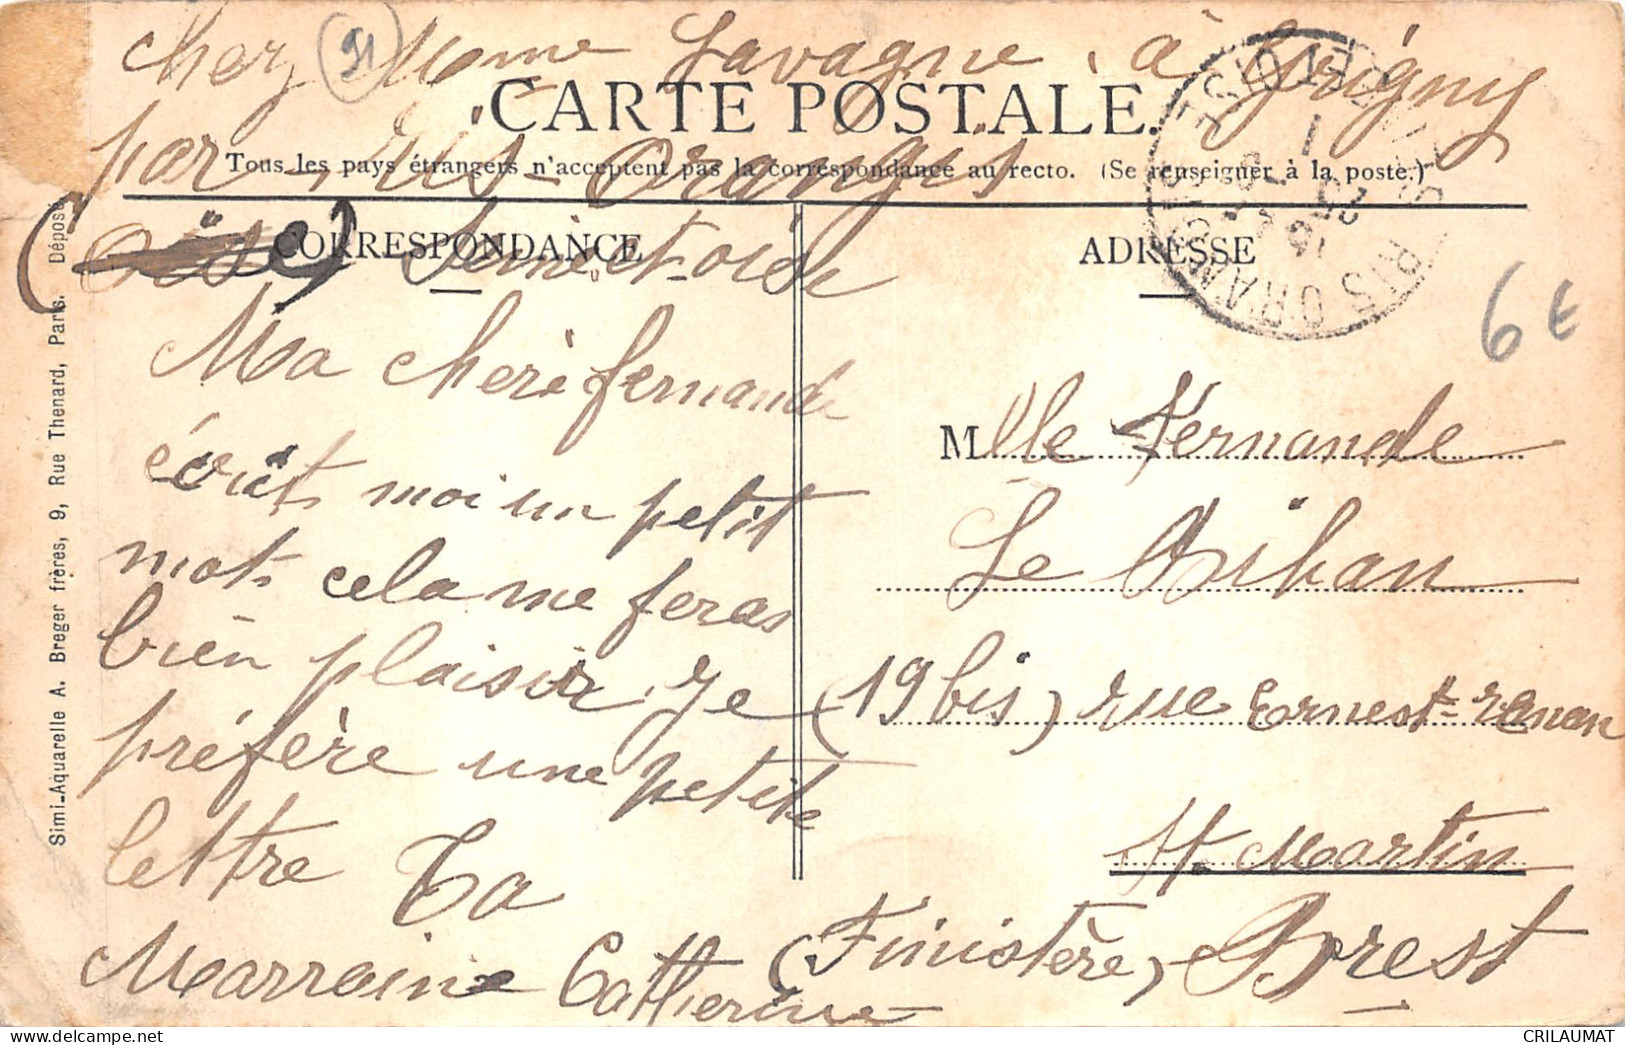 chez Mme Lavagne à Grigny
91
CARTE POSTALE.
par-ris-orangis
Tous les pays étrangers n'acceptent pas la correspondance au recto. (Se renseigner à la poste.)
(oise) Seine et-oise
CORRESPONDANCE
Ma cheré fernande
écrit moi un petit
mot cela me feras
bien plaisir. Je
préfère une petite
lettre Ta
Marraine Catherine
ADRESSE
RIS ORANGIS
SEINE-ET-OISE
6€
Mlle Fernande
Le Bihan
(19 bis) rue Ernest-renan
St. Martin
(Finistère) Brest
Simi-Aquarelle A. Breger frères, 9, Rue Thenard, Paris. Déposé
CRILAUMAT